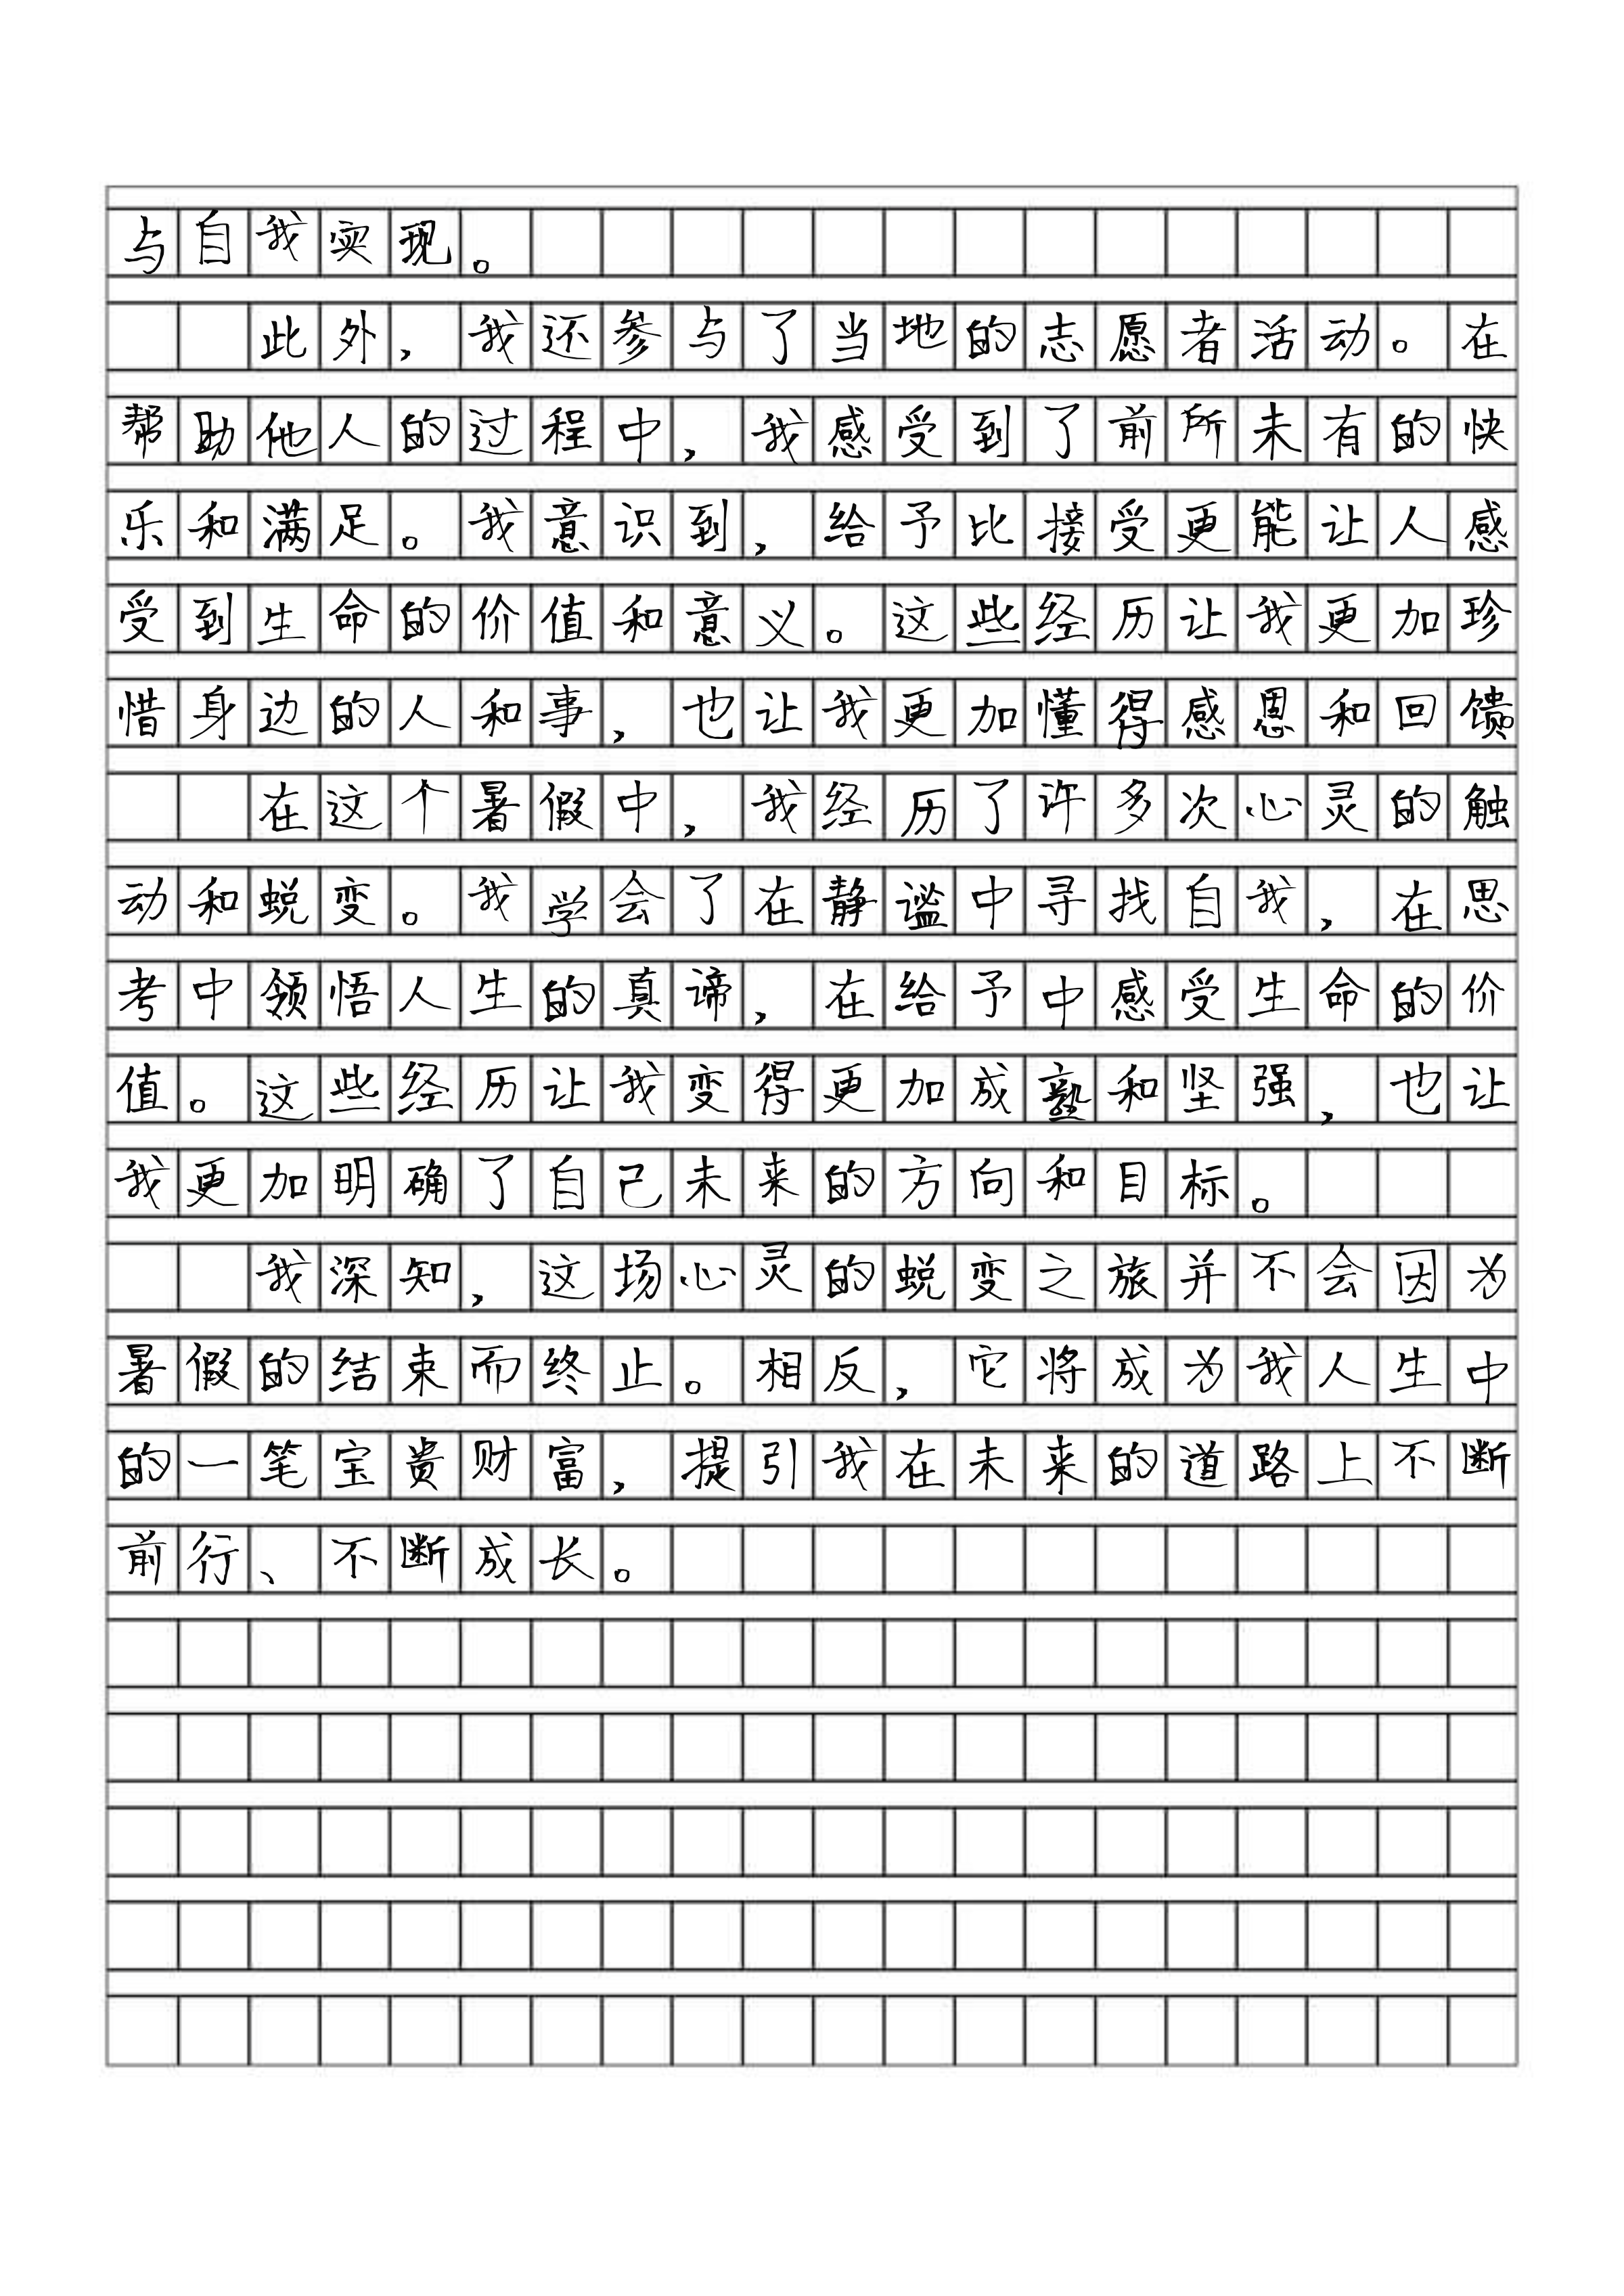 与自我实现。
此外，我还参与了当地的志愿者活动。在
帮助他人的过程中，我感受到了前所未有的快
乐和满足。我意识到，给予比接受更能让人感
受到生命的价值和意义。这些经历让我更加珍
惜身边的人和事，也让我更加懂得感恩和回馈。
在这个暑假中，我经历了许多次心灵的触
动和蜕变。我学会了在静谧中寻找自我，在思
考中领悟人生的真谛，在给予中感受生命的价
值。这些经历让我变得更加成熟和坚强，也让
我更加明确了自己未来的方向和目标。
我深知，这场心灵的蜕变之旅并不会因为
暑假的结束而终止。相反，它将成为我人生中
的一笔宝贵财富，提引我在未来的道路上不断
前行、不断成长。